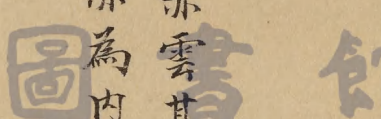 亦雲
為内
圖書館